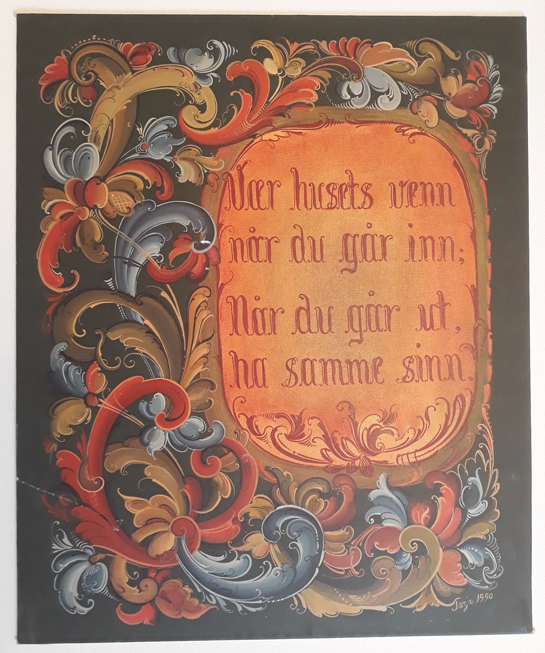 Vær husets venn
når du går inn;
Når du går ut,
ha samme sinn.
1990